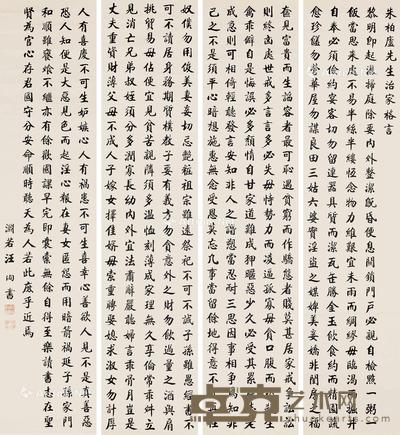 朱柏廬先生治家格言
黎明即起灑掃庭除要內外整潔既昏便息關鎖門戶必親自檢點一粥一
飯當思來處不易半絲半縷恆念物力維艱宜未雨而綢繆毋臨渴而掘井
自奉必須儉約宴客切勿留連器具質而潔瓦缶勝金玉飲食約而精園蔬
愈珍饈勿營華屋勿謀良田三姑六婆實淫盜之媒婢美妾嬌非閨閣之福
奩見富貴而生諂容者最可恥遇貧窮而作驕態者賤莫甚居家戒爭訟訟
則終凶處世戒多言言多必失毋恃勢力而凌逼孤寡毋貪口腹而恣殺生
禽乖僻自是悔誤必多頹惰自甘家道難成狎暱惡少久必受其累屈志老
成急則可相倚輕聽發言安知非人之譖愬當忍耐三思因事相爭焉知非
己之不是須平心暗想施惠無念受恩莫忘凡事當留餘地得意不宜再往
奴僕勿用俊美妻妾切忌艷粧祖宗雖遠祭祀不可不誠子孫雖愚經書不
可不讀居身務期質樸教子要有義方勿貪意外之財勿飲過量之酒與肩
挑貿易毋佔便宜見貧苦親鄰須多溫恤刻薄成家理無久享倫常乖舛立
見消亡兄弟叔姪須分多潤寡長幼內外宜法肅辭嚴聽婦言乖骨肉豈是
丈夫重資財薄父母不成人子嫁女擇佳婿毋索重聘娶媳求淑女勿計厚
人有喜慶不可生妒嫉心人有禍患不可生喜幸心善欲人見不是真善惡
恐人知便是大惡見色而起淫心報在妻女匿怨而用暗箭禍延子孫家門
和順雖饔飧不繼亦有餘歡國課早完即囊橐無餘自得至樂讀書志在聖
賢為官心存君國守分安命順時聽天為人若此庶乎近焉
淵若汪洵書